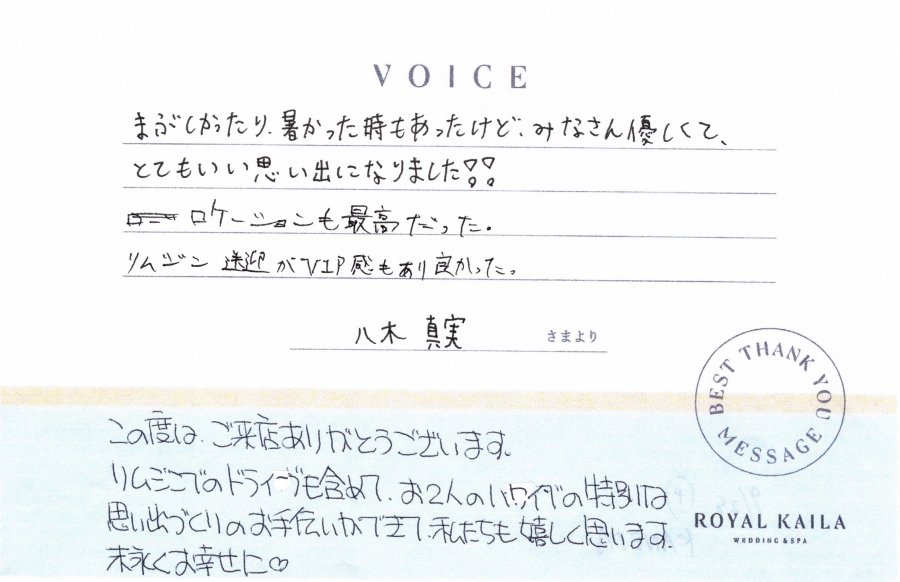 VOICE
まぶしかったり、暑かった時もあったけど、みなさん優しくて、
とてもいい思い出になりました!!
ロケーションも最高だった。
リムジン送迎がVIP感もあり良かった。
八木 真実 さまより
BEST THANK YOU MESSAGE
この度は、ご来店ありがとうございます。
リムジンでのドライブも含めて、お2人のハワイでの特別な
思い出づくりのお手伝いができて、私たちも嬉しく思います。
末永くお幸せに♡
ROYAL KAILA
WEDDING & SPA